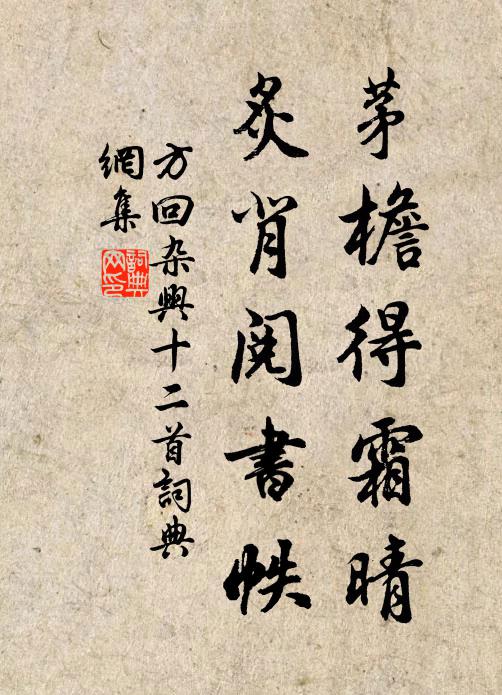 茅檐得霜晴
炙背閱書帙
方回杂興十二首詞典
網集
詞典網印